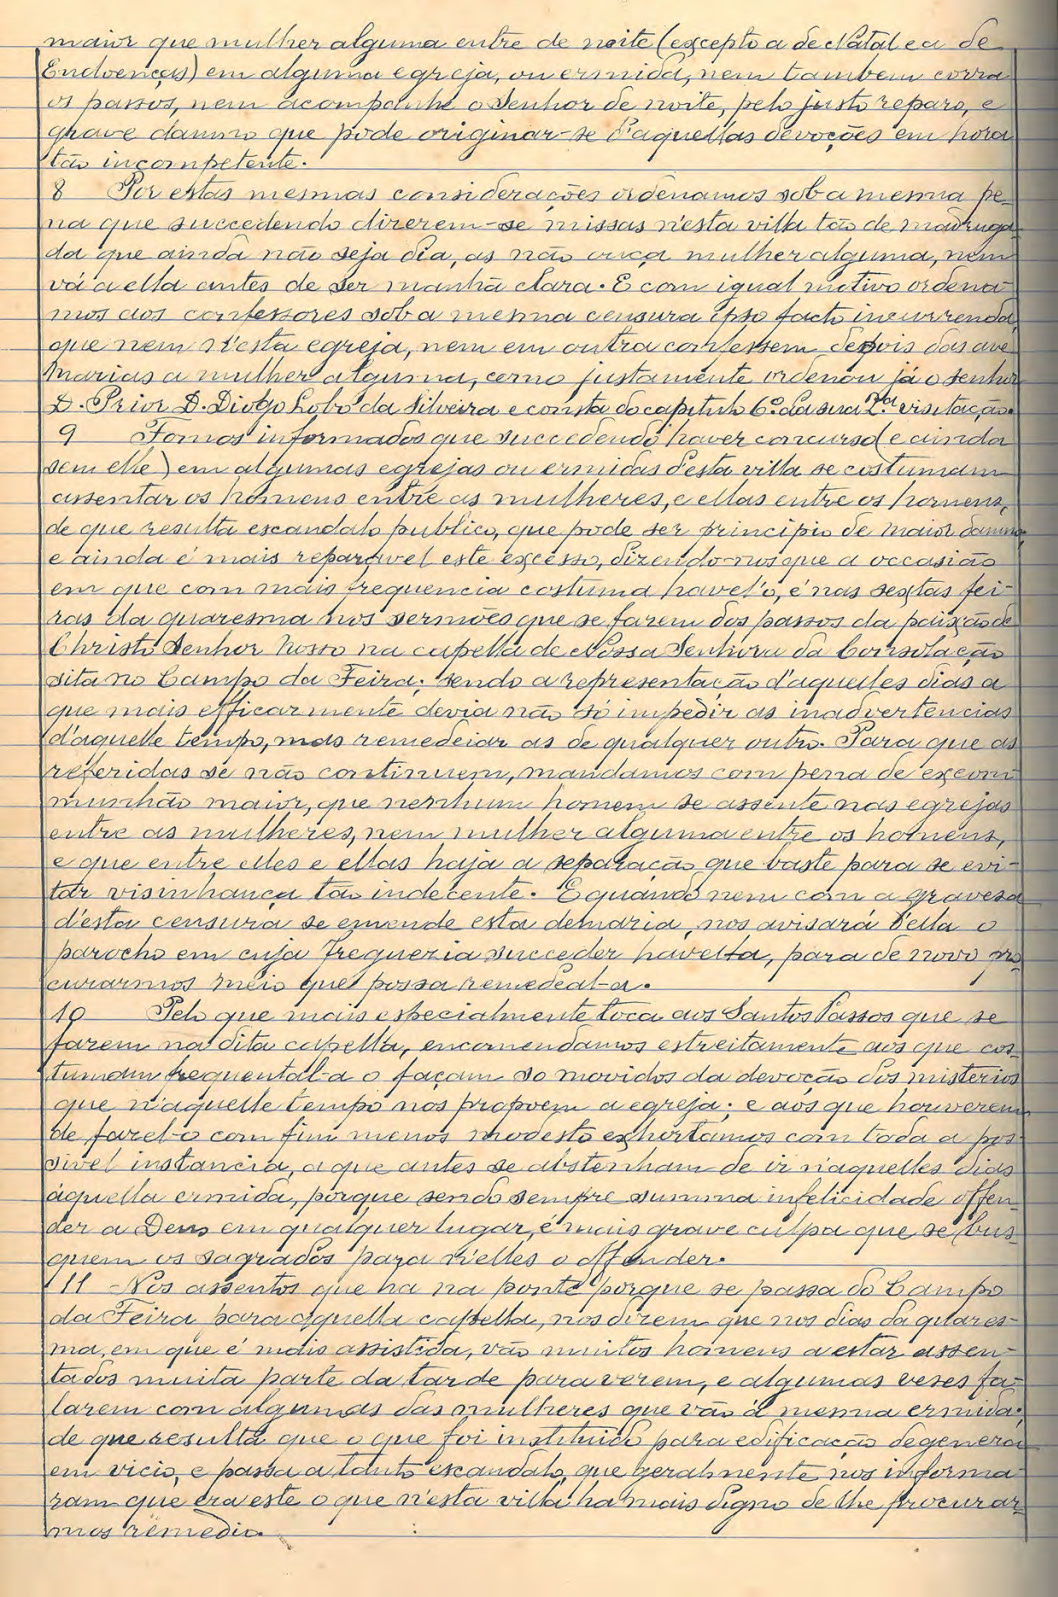 maior que mulher alguma entre de noite (excepto a de Natal e a de
Endoenças) em alguma egreja, ou ermida, nem tambem corra
os passos, nem acompanhe o Senhor de noite, pelo justo reparo, e
grave damno que pode originar-se d'aquellas devoções em hora
tão incompetente.
8 Por estas mesmas considerações ordenamos sob a mesma pe-
na que succedendo dizerem-se missas n'esta villa tão de madruga-
da que ainda não seja dia, as não ouça mulher alguma, nem
vá a ella antes de ser manhã clara. E com igual motivo ordena-
mos aos confessores sob a mesma censura ipso facto incurrenda,
que nem n'esta egreja, nem em outra confessem depois das ave
Marias a mulher alguma, como justamente ordenou já o senhor
D. Prior D. Diogo Lobo da Silveira e consta do capitulo 6º da sua 2ª visitação.
9 Fomos informados que succedendo haver concurso (e ainda
sem elle) em algumas egrejas ou ermidas d'esta villa se costumam
assentar os homens entre as mulheres, e ellas entre os homens,
de que resulta escandalo publico, que pode ser principio de maior damno,
e ainda é mais reparavel este excesso, dizendo-nos que a occasião
em que com mais frequencia costuma havel-o, é nas sextas fei-
ras da quaresma nos sermões que se fazem dos passos da paixão de
Christo Senhor Nosso na capella de Nossa Senhora da Consolação
sita no Campo da Feira; sendo a representação d'aquelles dias a
que mais efficazmente devia não só impedir as inadvertencias
d'aquelle tempo, mas remedeiar as de qualquer outro. Para que as
referidas se não continuem, mandamos com pena de excom-
munhão maior, que nenhum homem se assente nas egrejas
entre as mulheres, nem mulher alguma entre os homens,
e que entre elles e ellas haja a separação que baste para se evi-
tar visinhança tão indecente. E quando nem com a graveza
d'esta censura se emende esta demazia, nos avisará d'ella o
parocho em cuja freguezia succeder havel-a, para de novo pro-
curarmos meio que possa remedeal-a.
10 Pelo que mais especialmente toca aos Santos Passos que se
fazem na dita capella, encomendamos estreitamente aos que cos-
tumam frequental-a o façam só movidos da devoção dos misterios
que n'aquelle tempo nos propoem a egreja; e aos que houverem
de fazel-o com fim menos modesto exhortamos com toda a pos-
sivel instancia, a que antes se abstenham de ir n'aquelles dias
áquella ermida, porque sendo sempre summa infelicidade offen-
der a Deus em qualquer lugar, é mais grave culpa que se bus-
quem os sagrados para n'elles o offender.
11 Nos assentos que ha na ponte porque se passa do Campo
da Feira para aquella capella, nos dizem que nos dias da quares-
ma, em que é mais assistida, vão muitos homens a estar assen-
tados muita parte da tarde para verem, e algumas vezes fa-
larem com algumas das mulheres que vão á mesma ermida;
de que resulta que o que foi instituido para edificação degenera
em vicio, e passa a tanto escandalo, que geralmente nos informa-
ram que era este o que n'esta villa ha mais digno de lhe procurar-
mos remedio.